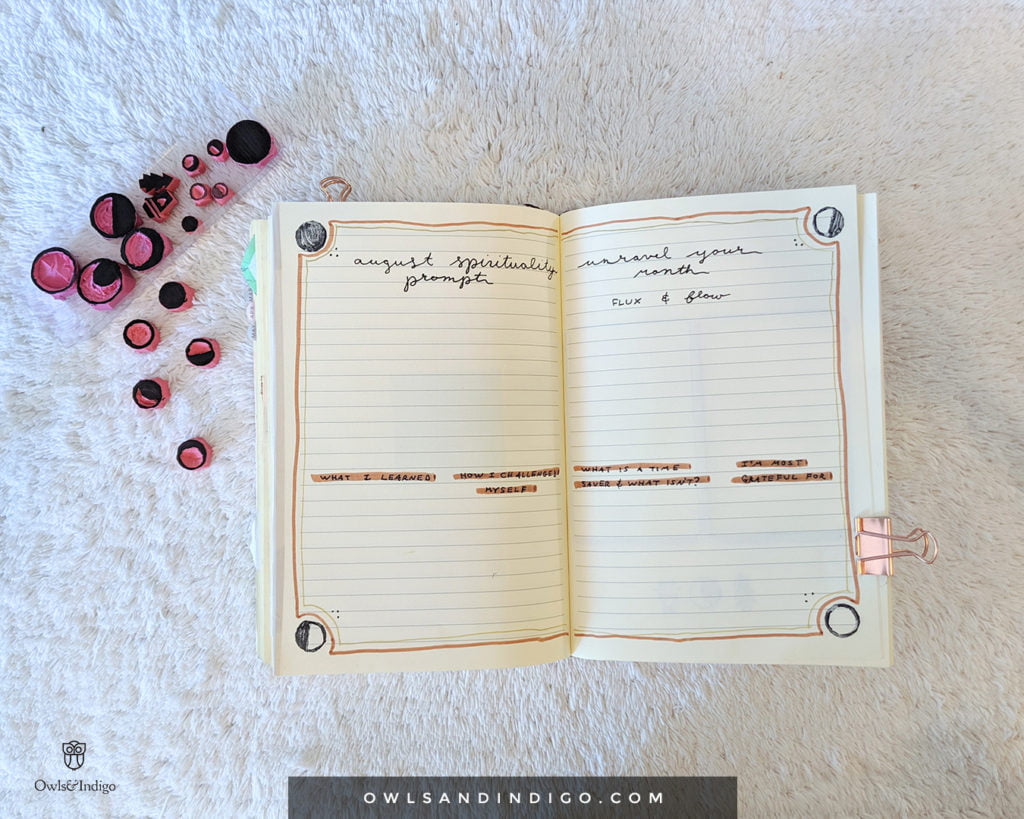 august spirituality
prompt
unravel your
month
FLUX & flow
WHAT I LEARNED
HOW I CHALLENGED
MYSELF
WHAT IS A TIME
SAVER & WHAT ISN'T?
I'M MOST
GRATEFUL FOR
Owls&Indigo
OWLSANDINDIGO.COM